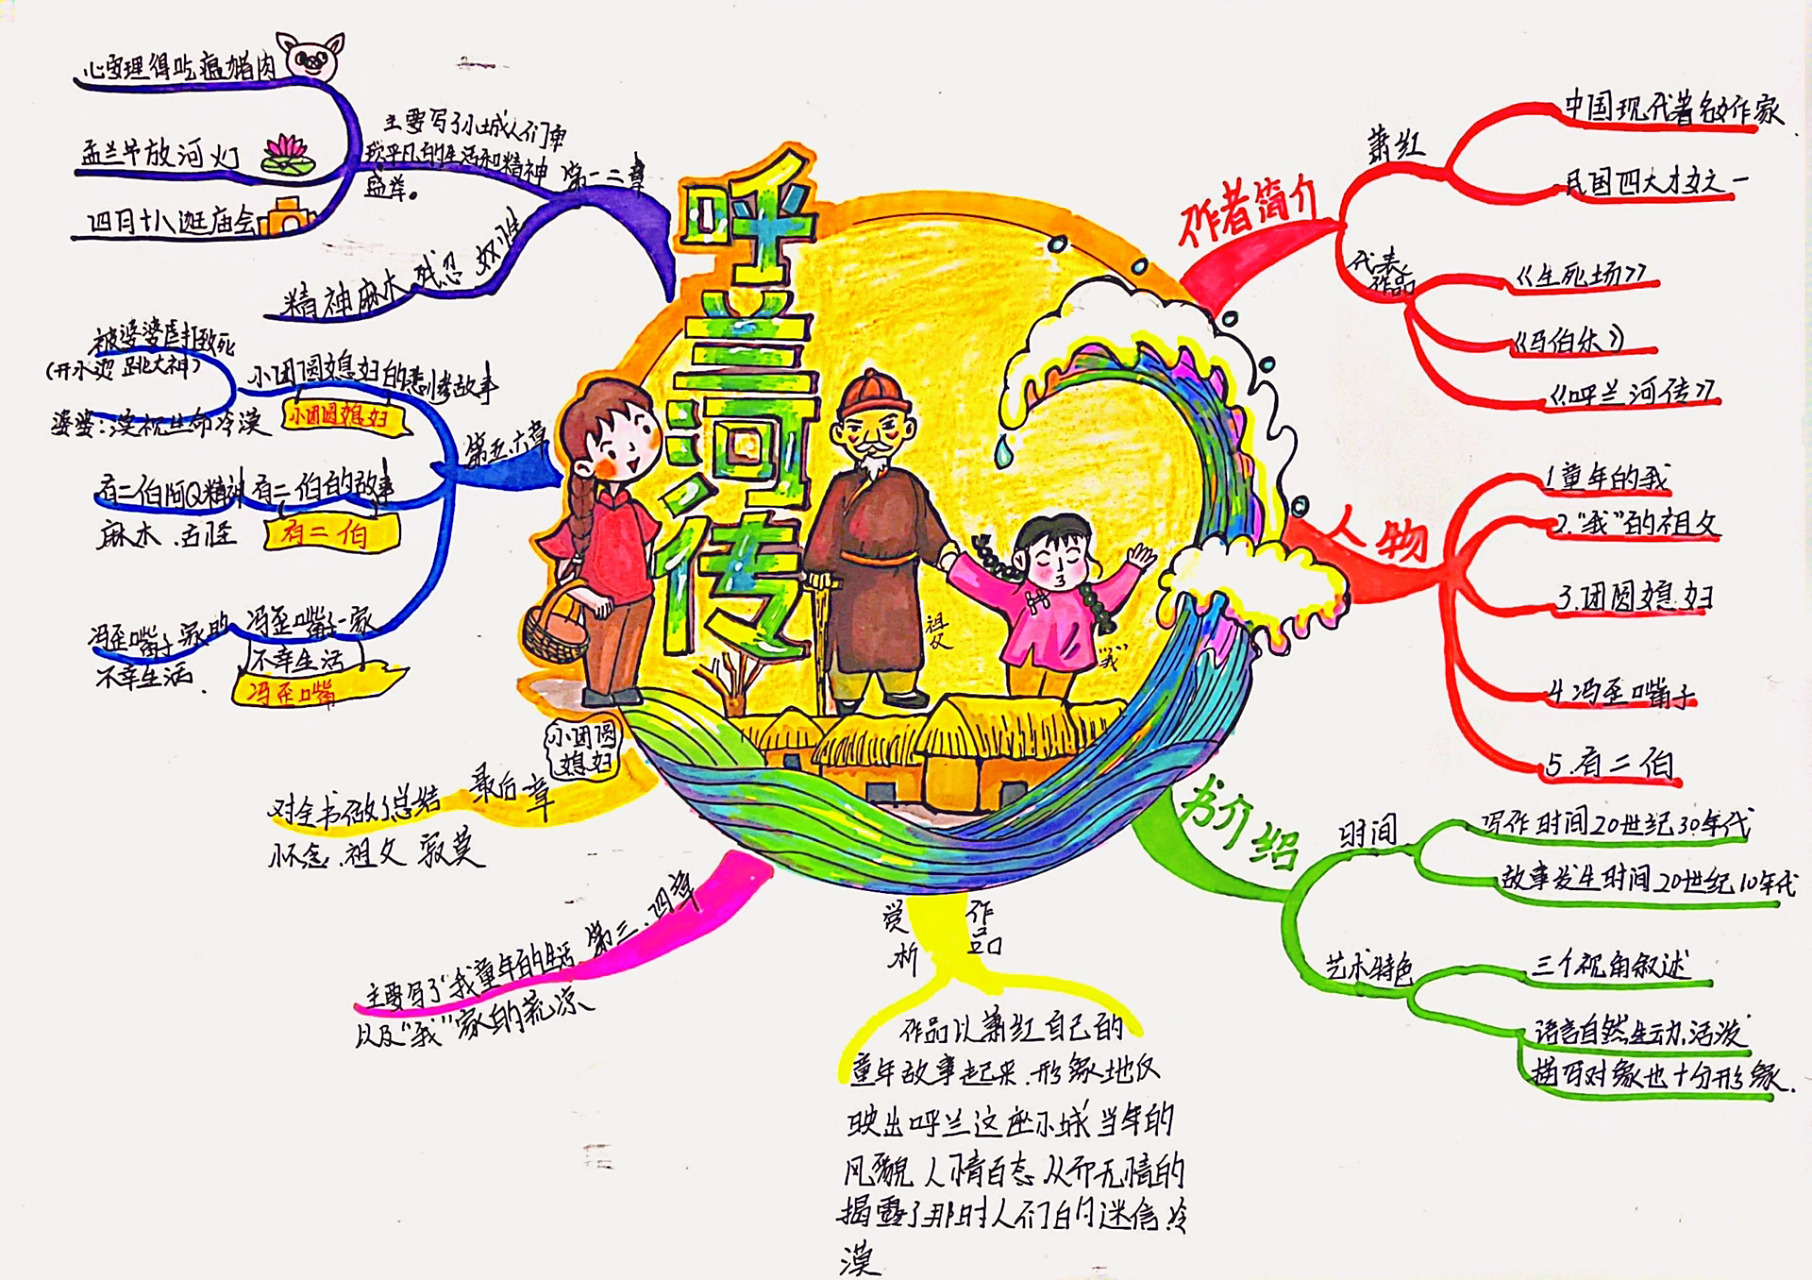 呼兰河传
作者简介
萧红
中国现代著名作家
民国四大才女之一
代表
作品
《生死场》
《马伯乐》
《呼兰河传》
人物
1童年的我
2.“我”的祖父
3.团圆媳妇
4.冯歪嘴子
5.有二伯
书介绍
时间
写作时间20世纪30年代
故事发生时间20世纪10年代
艺术特色
三个视角叙述
语言自然生动,活泼
描写对象也十分形象.
作品
赏析
作品以萧红自己的
童年故事起来.形象地仅
映出呼兰这座小城当年的
风貌人情百态从而无情的
揭露了那时人们的迷信冷
漠
第三.四章
主要写了“我童年的生活
以及“我”家的荒凉
最后一章
对全书做了总结
怀念.祖父 寂莫
第五.六章
小团圆媳妇的悲惨故事
小团圆媳妇
被婆婆虐打致死
(开水烫 跳大神)
婆婆:漠视生命冷漠
有二伯的故事
有二伯
有二伯阿Q精神
麻木.古怪
冯歪嘴子一家
不幸生活
冯歪嘴
冯歪嘴子家的
不幸生活.
第一二章
主要写了小城人们卑
琐平凡的生活和精神
盛举。
心安理得吃瘟猪肉
盂兰节放河灯
四月十八逛庙会
精神麻木 残忍 奴性
祖父
“我”
小团圆
媳妇